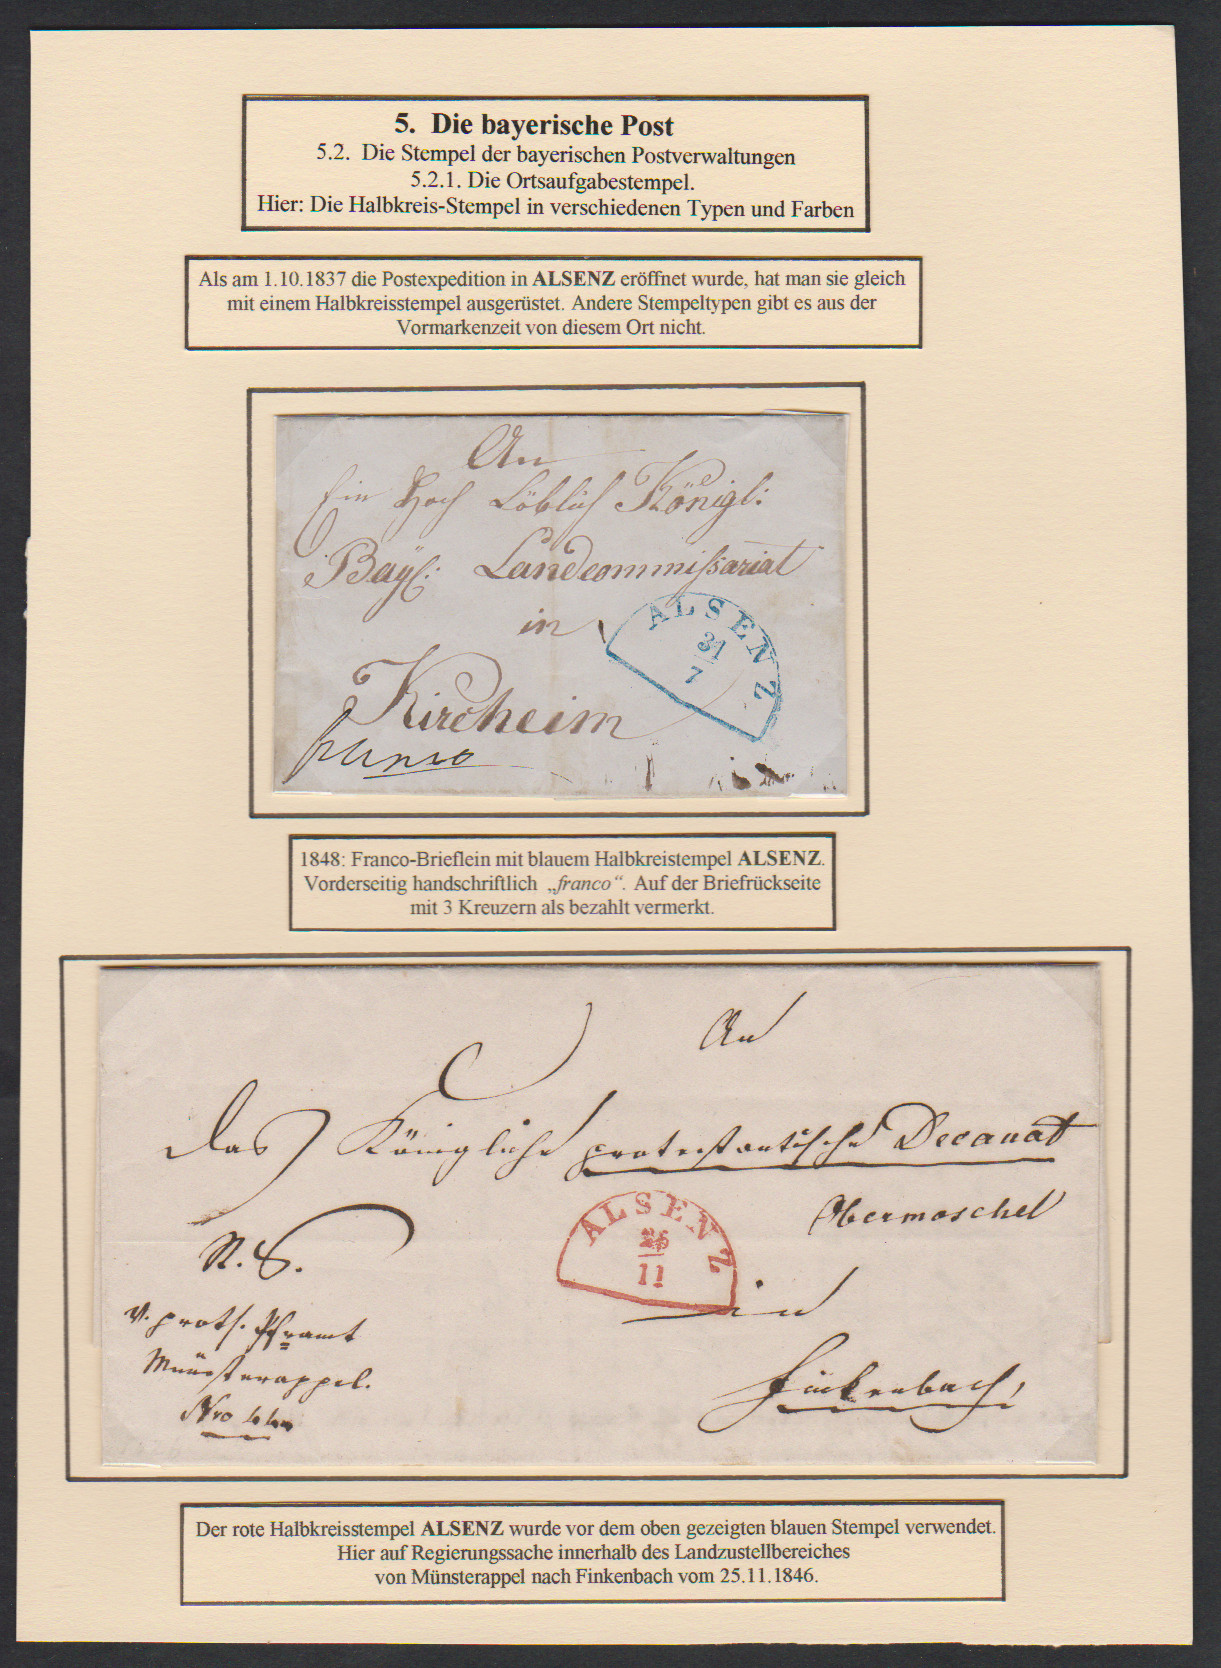 5. Die bayerische Post
5.2. Die Stempel der bayerischen Postverwaltungen
5.2.1. Die Ortsaufgabestempel.
Hier: Die Halbkreis-Stempel in verschiedenen Typen und Farben
Als am 1.10.1837 die Postexpedition in ALSENZ eröffnet wurde, hat man sie gleich
mit einem Halbkreisstempel ausgerüstet. Andere Stempeltypen gibt es aus der
Vormarkenzeit von diesem Ort nicht.
An
Ein Hoch Löblich Königl:
Bay: Landcommissariat
in
Kircheim
franco
ALSENZ
31
7
1848: Franco-Brieflein mit blauem Halbkreistempel ALSENZ.
Vorderseitig handschriftlich „franco“. Auf der Briefrückseite
mit 3 Kreuzern als bezahlt vermerkt.
An
Das Königliche protestantische Decanat
Obermoschel
R. S.
in
v. prots. Pframt
Münsterappel.
Nro
Finkenbach,
ALSENZ
25
11
Der rote Halbkreisstempel ALSENZ wurde vor dem oben gezeigten blauen Stempel verwendet.
Hier auf Regierungssache innerhalb des Landzustellbereiches
von Münsterappel nach Finkenbach vom 25.11.1846.